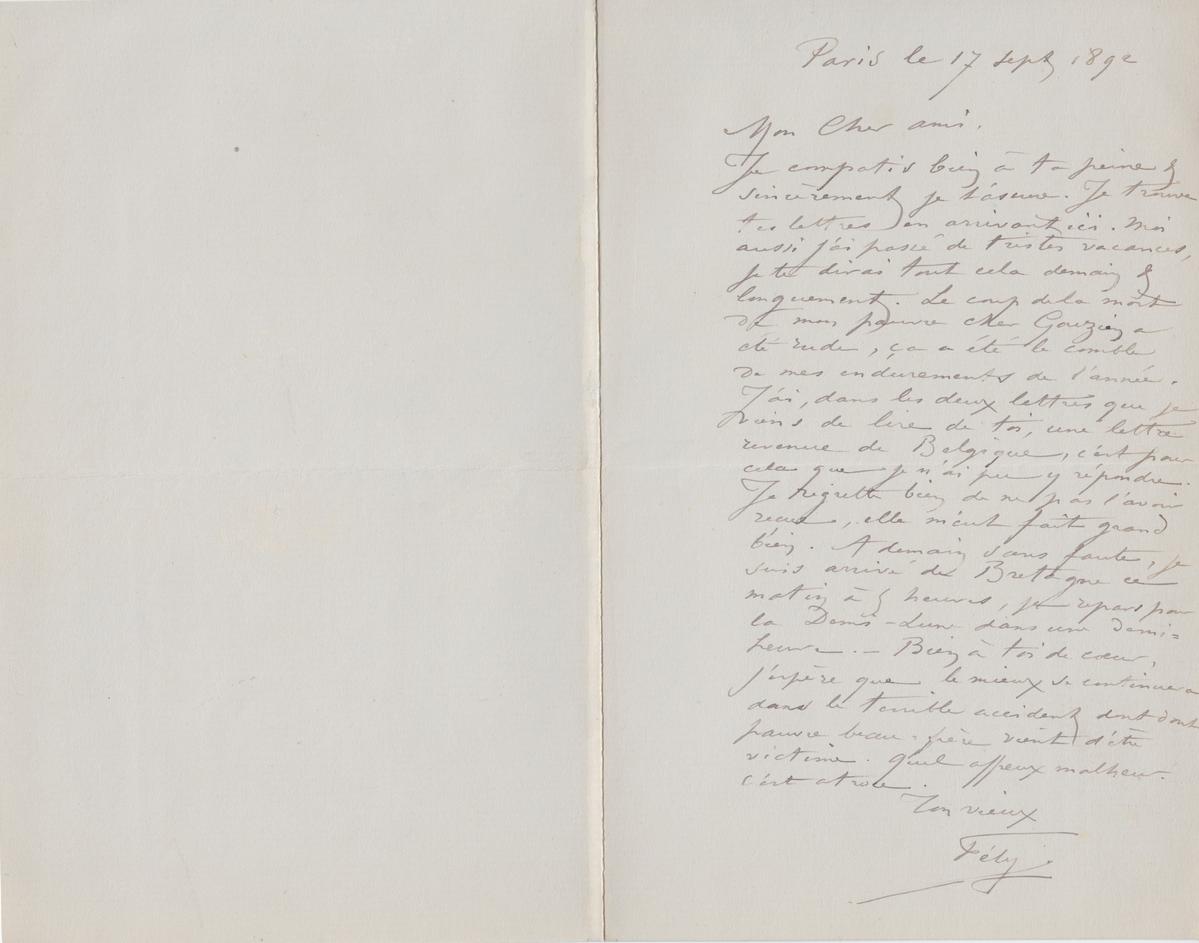 Paris le 17 sept 1892
Mon Cher ami.
Je compatis bien à ta peine &
sincèrement je t'assure. Je trouve
tes lettres en arrivant ici. Moi
aussi j'ai passé de tristes vacances,
je te dirai tout cela demain &
longuement. Le coup de la mort
de mon pauvre cher Gouzien a
été rude, ça a été le comble
de mes endurements de l'année.
J'ai, dans les deux lettres que je
viens de lire de toi, une lettre
revenue de Belgique, c'est pour
cela que je n'ai pu y répondre.
Je regrette bien de ne pas l'avoir
reçue, elle m'eut fait grand
bien. A demain sans faute, je
suis arrivé de Bretagne ce
matin à 5 heures, je repars pour
la Demi-Lune dans une demi=
heure. – Bien à toi de cœur,
j'espère que le mieux se continuera
dans le terrible accident dont dont
pauvre beau-frère vient d'être
victime. Quel affreux malheur.
c'est atroce.
Ton vieux
Fély